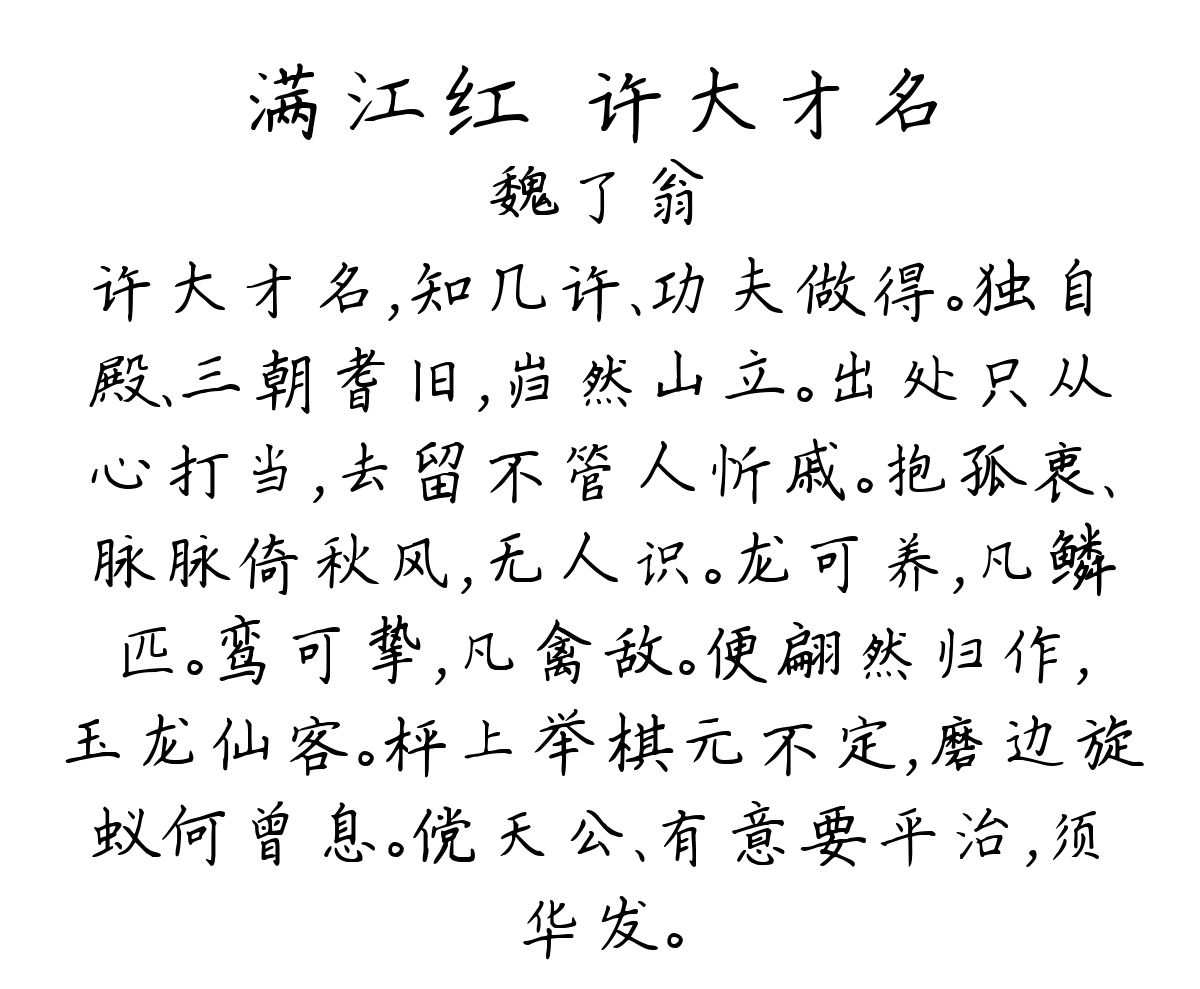 满江红 许大才名
魏了翁
许大才名,知几许、功夫做得。独自
殿、三朝耆旧,岿然山立。出处只从
心打当,去留不管人忻戚。抱孤衷、
脉脉倚秋风,无人识。龙可养,凡鳞
匹。鸾可挚,凡禽敌。便翩然归作,
玉龙仙客。枰上举棋元不定,磨边旋
蚁何曾息。傥天公、有意要平治,须
华发。